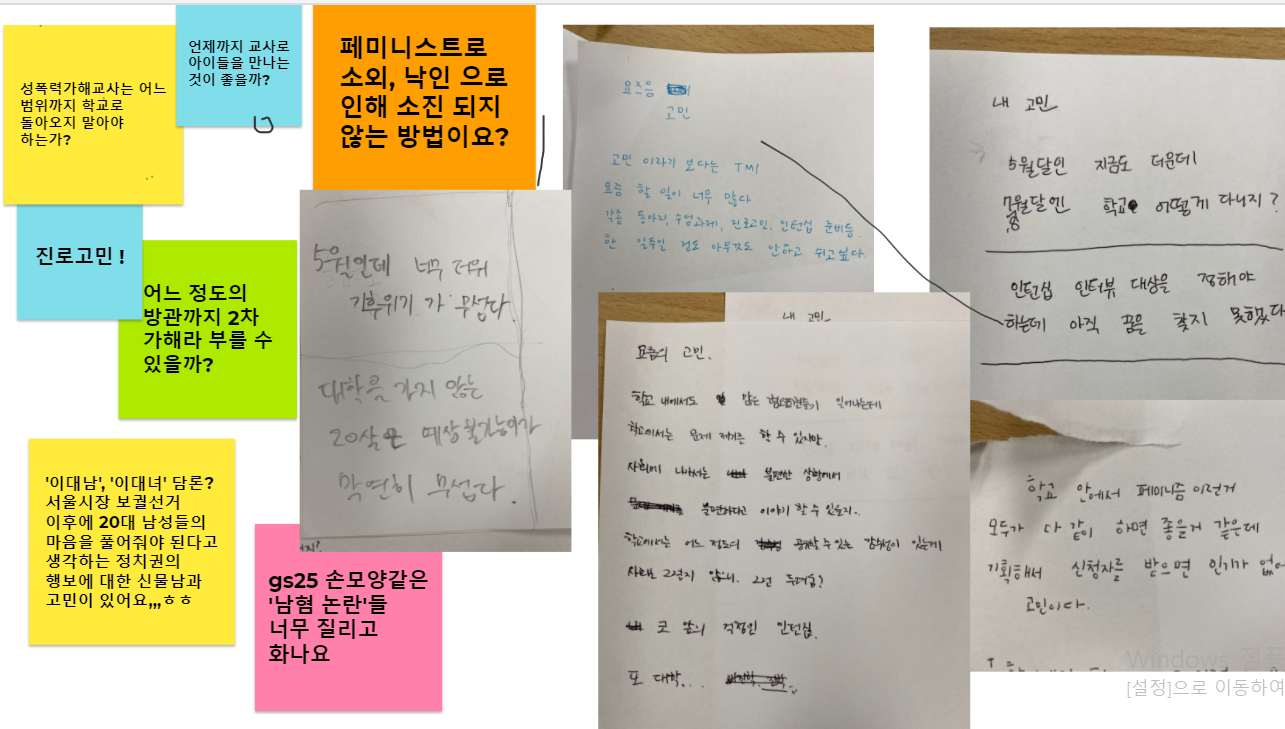 성폭력가해교사는 어느
범위까지 학교로
돌아오지 말아야
하는가?
언제까지 교사로
아이들을 만나는
것이 좋을까?
페미니스트로
소외, 낙인 으로
인해 소진 되지
않는 방법이요?
진로고민 !
어느 정도의
방관까지 2차
가해라 부를 수
있을까?
'이대남', '이대녀' 담론?
서울시장 보궐선거
이후에 20대 남성들의
마음을 풀어줘야 된다고
생각하는 정치권의
행보에 대한 신물남과
고민이 있어요,,,ㅎㅎ
gs25 손모양같은
'남혐 논란'들
너무 질리고
화나요
5월인데 너무 더워
기후위기 가 무섭다
대학을 가지 않는
20살은 예상불가능이가
막연히 무섭다.
요즈음
고민
고민 이라기 보다는 TMI
요즘 할 일이 너무 많다
각종 동아리, 수업과제, 진로고민, 인턴십 준비등.
한 일주일 정도 아무것도 안하고 쉬고싶다.
내 고민
5월달인 지금도 더운데
7월달엔 학교 어떻게 다니지?
인턴십 인터뷰 대상을 정해야
하는데 아직 꿈을 찾지 못했다
내 고민
요즘의 고민.
학교 내에서도 많은 혐오표현들이 일어나는데
학교에서는 문제 제기를 할 수 있지만.
사회에 나가서는 불편한 상황에서
불편하다고 이야기 할 수 있을지..
학교에서는 어느 정도의 공유할 수 있는 감수성이 있는데
사회는 그렇지 않으니. 그런 두려움?
코 앞의 걱정인 인턴십.
또 대학...
학교 안에서 페미니즘 이런거
모두가 다 같이 하면 좋을거 같은데
기획해서 신청자를 받으면 인기가 없어
고민이다.
Windows 정품
[설정]으로 이동하여